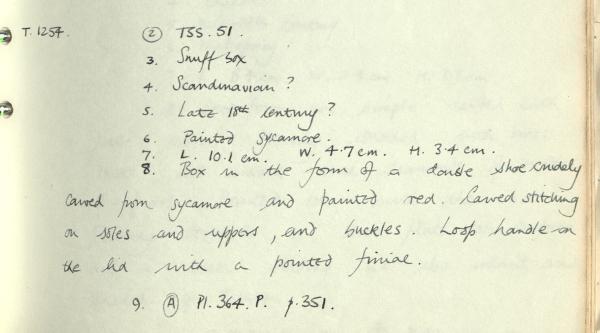 T. 1257. (2) TSS. 51.
3. Snuff box
4. Scandinavian?
5. Late 18th Century?
6. Painted sycamore.
7. L. 10.1 cm. W. 4.7 cm. H. 3.4 cm.
8. Box in the form of a double shoe crudely
carved from sycamore and painted red. Carved stitching
on soles and uppers, and buckles. Loop handle on
the lid with a pointed finial.
9. (A) Pl. 364. P. p. 351.